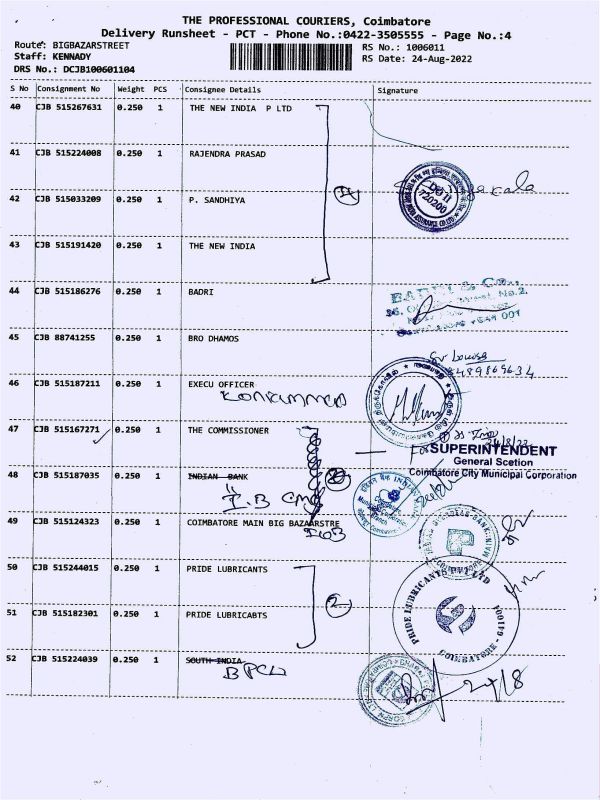 THE PROFESSIONAL COURIERS, Coimbatore
Delivery Runsheet - PCT - Phone No.:0422-3505555 - Page No.:4
Route: BIGBAZARSTREET
RS No.: 1006011
Staff: KENNADY
RS Date: 24-Aug-2022
DRS No.: DCJB100601104
S No Consignment No Weight PCS Consignee Details Signature
40 CJB 515267631 0.250 1 THE NEW INDIA P LTD
41 CJB 515224008 0.250 1 RAJENDRA PRASAD
42 CJB 515033209 0.250 1 P. SANDHIYA
720200
43 CJB 515191420 0.250 1 THE NEW INDIA
44 CJB 515186276 0.250 1 BADRI
45 CJB 88741255 0.250 1 BRO DHAMOS
46 CJB 515187211 0.250 1 EXECU OFFICER
47 CJB 515167271 0.250 1 THE COMMISSIONER
24/8/22
For SUPERINTENDENT
General Scetion
Coimbatore City Municipal Corporation
48 CJB 515187035 0.250 1 INDIAN BANK
I.B
49 CJB 515124323 0.250 1 COIMBATORE MAIN BIG BAZAARSTRE
IOB
50 CJB 515244015 0.250 1 PRIDE LUBRICANTS
2
51 CJB 515182301 0.250 1 PRIDE LUBRICABTS
PRIDE LUBRICANTS PVT LTD
COIMBATORE - 641001
52 CJB 515224039 0.250 1 SOUTH INDIA
BPCL
24/8